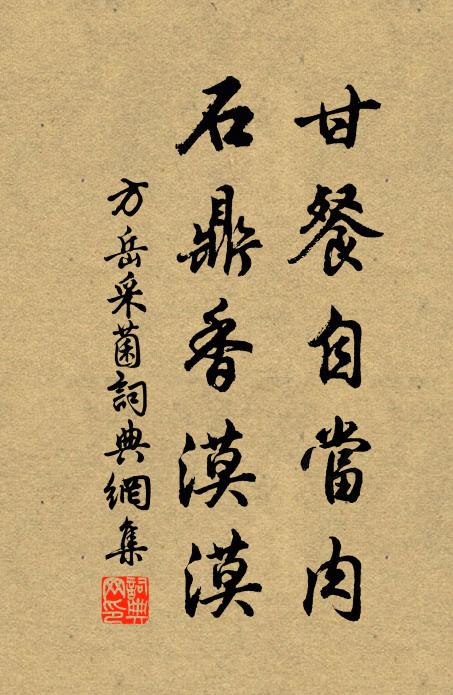 甘餐自當肉
石鼎香漠漠
方岳采菌詞典網集
詞典網印